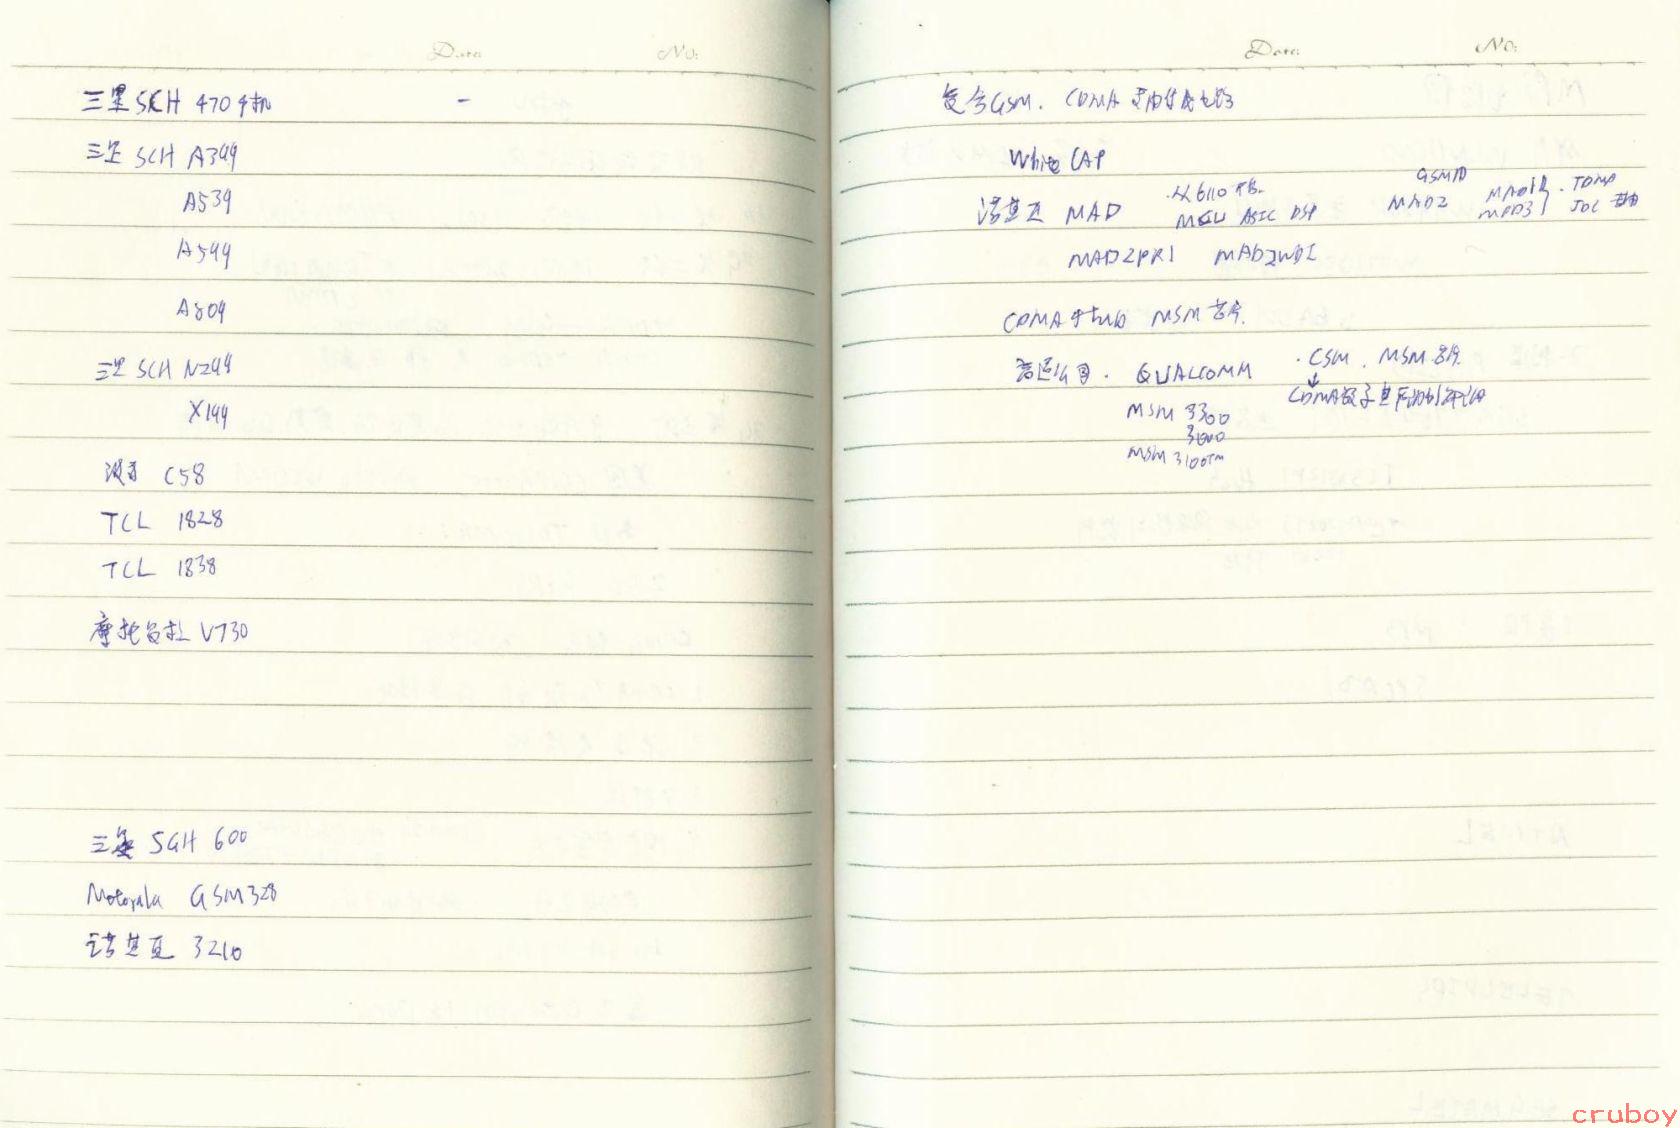 Date:
No:
三星SCH 470手机 -
三星 SCH A399
A539
A599
A809
三星 SCH N299
X199
波导 C58
TCL 1828
TCL 1838
摩托罗拉 V730
三星 SGH 600
Motorola GSM328
诺基亚 3210
Date:
No:
复合GSM. CDMA
White CAP
诺基亚 MAD
从6110
MCU ASIC DSP
MAD2
MAD2PR1 MAD2WD1
CDMA手机的 MSM 芯片.
高通公司. QUALCOMM
. CSM. MSM 芯片
MSM 3300
3000
MSM 3100TM
cruboy